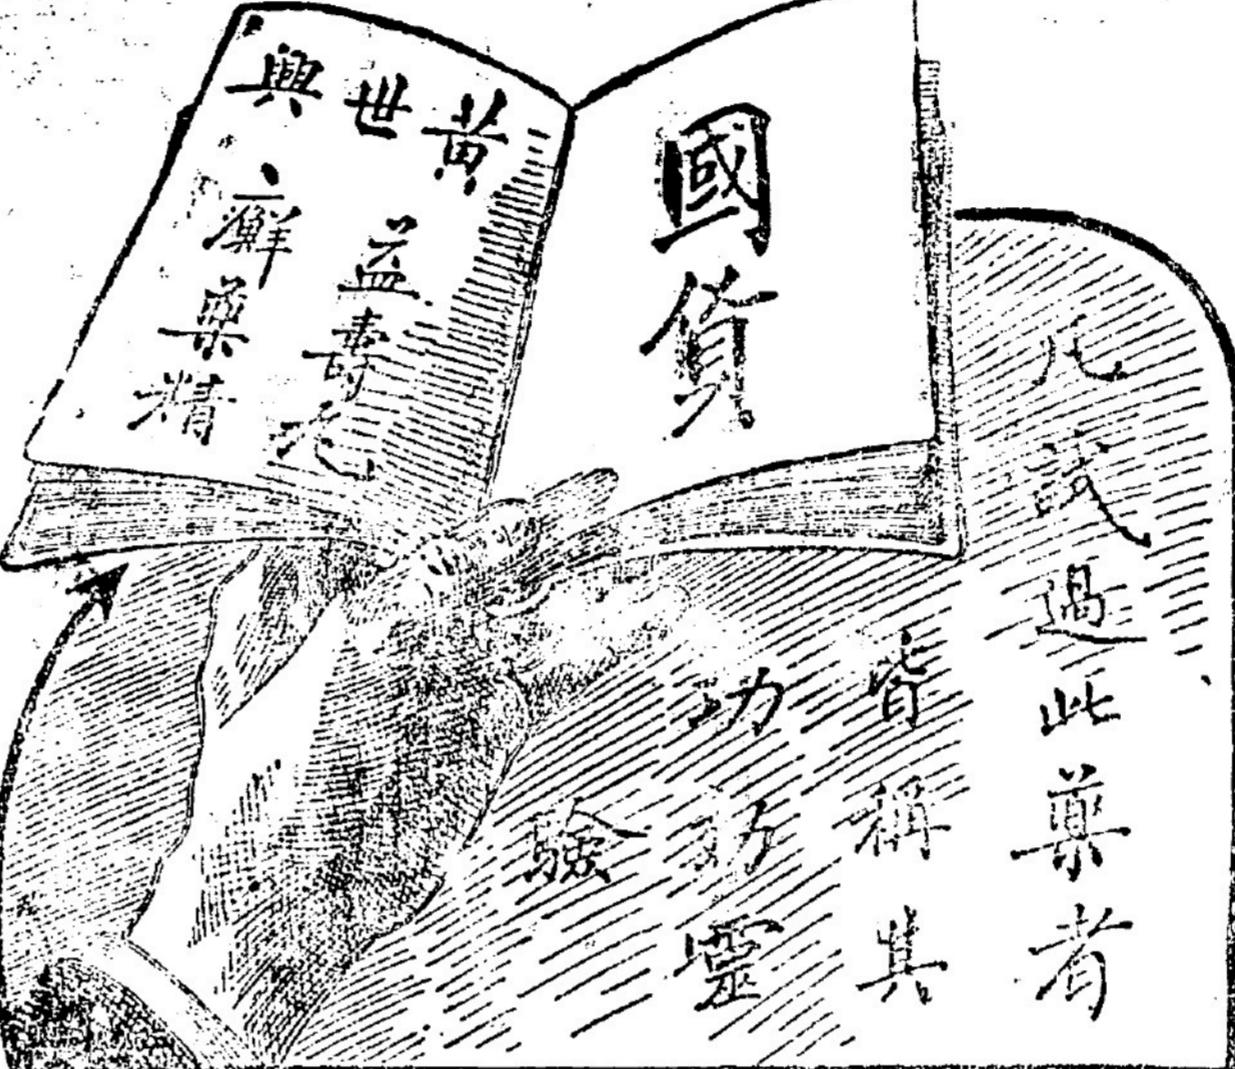 國貨
黃世興
益壽元
癬藥精
凡試過此藥者
皆稱其
功効靈
驗